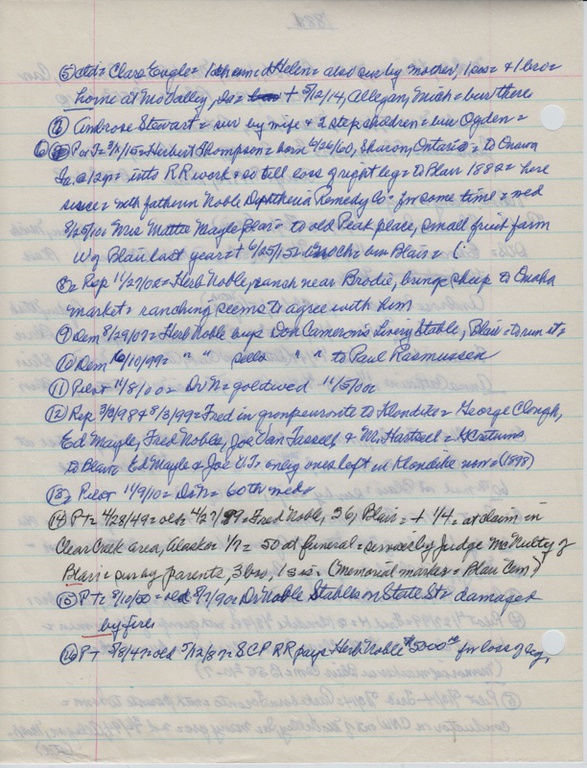 ⑤ ctd = Clara Engle = 1ch = md Helen = also sur by mother, 1 sis + 1 bro =
home at McNalley, Ia = + 5/12/14, Allegan, Mich = bur there
⑦ Ambrose Stewart = sur by wife & 2 step children = live Ogden =
6 P or T = 7/1/15 = Herbert Thompson = born 6/26/60, Sharon, Ontario = to Onawa
Ia, @ 12yr = into RR work & so till loss of right leg = to Blair 1882 = here
since = with father in Noble Diphtheria Remedy Co = for some time = md
8/25/01 Mrs Mattie Mayle, Blair = to old Peak place, small fruit farm
W of Blair last year = + 6/25/15 = no ch = bur Blair =
⑧ Rep 11/27/02 = Herb Noble, ranch near Brodie, brings sheep to Omaha
market = ranching seems to agree with him
⑨ Dem 8/29/07 = Herb Noble buys Don Cameron's Livery Stable, Blair = to run it =
⑩ Dem 10/10/99 = " " sells " " to Paul Rasmussen
⑪ Pilot 11/8/00 = Dr N = gold wed 11/5/00
⑫ Rep 3/3/98 & 8/3/99 = Fred in group enroute to Klondike = George Clough,
Ed Mayle, Fred Noble, Joe Van Tassell, & M. Hartzell = returns
to Blair Ed Mayle & Joe V.T. only ones left in Klondike now = (1898)
⑬ Pilot 11/9/10 = Dr N = 60th wed =
⑭ PT = 4/28/49 = old 4/27/99 = Fred Noble, 36, Blair = + 1/4 = at claim in
Clear Creek area, Alaska 1/7 = 50 at funeral = service by Judge McNulty of
Blair = sur by parents, 3 bro, 1 sis = (memorial marker = Blair Cem)
⑮ PT = 8/10/50 = old 8/7/90 = Dr Noble Stables on State St = damaged
by fire
⑯ PT 5/8/47 = old 5/12/87 = SCP RR pays Herb Noble $5000.00 for loss of leg,